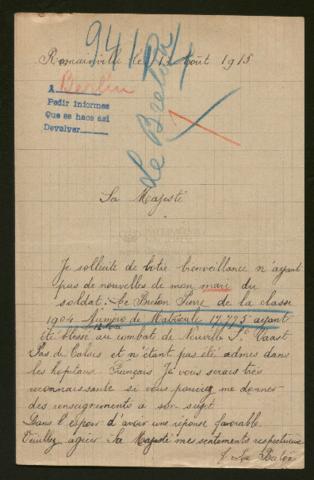 Romainville le 12 Août 1915
94174
Le Breton
A Berlin
Pedir informes
Que se hace asi
Devolver
Sa Majesté
Je sollicite de votre bienveillance n'ayant
pas de nouvelles de mon mari du
soldat: Le Breton Pierre de la classe
1904 Numéro de Matricule 17.775 ayant
été blessé au combat de Neuville St Vaast
Pas de Calais et n'étant pas été admis dans
les hopitaux Français Je vous serais très
reconnaissante si vous pouviez me donner
des renseignements a son sujet
Dans l'espoir d'avoir une réponse favorable
Veuillez agréer Sa Majesté mes sentiments respectueux
Le Breton